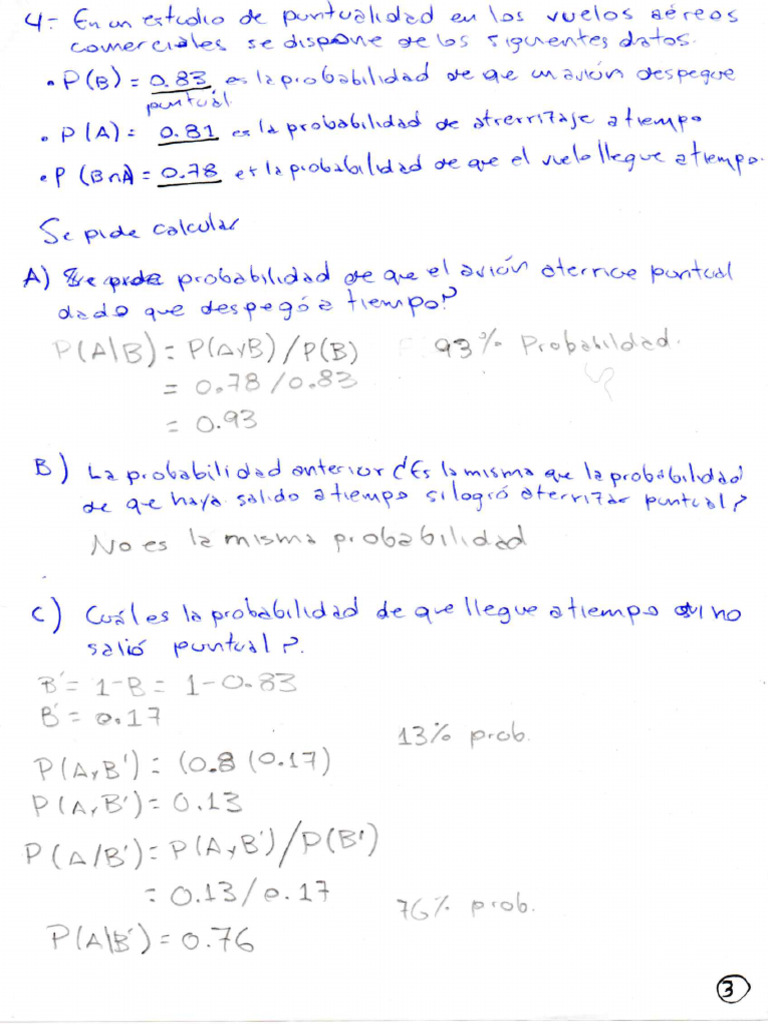 4.- En un estudio de puntualidad en los vuelos aéreos
comerciales se dispone de los siguientes datos.
• P(B) = 0.83 es la probabilidad de que un avión despegue
puntual.
• P(A) = 0.81 es la probabilidad de atrerrizaje a tiempo
• P (B∩A) = 0.78 es la probabilidad de que el vuelo llegue a tiempo.
Se pide calcular
A) probabilidad de que el avión aterrice puntual
dado que despegó a tiempo?
P(A|B) = P(A y B) / P(B) 93% Probabildad.
= 0.78 / 0.83
= 0.93
B) La probabilidad anterior ¿Es la misma que la probabilidad
de que haya salido a tiempo si logró aterrizar puntual?
No es la misma probabilidad
C) Cuál es la probabilidad de que llegue a tiempo si no
salió puntual?.
B' = 1-B = 1-0.83
B' = 0.17
13% prob.
P(A y B') = (0.8 (0.17)
P(A y B') = 0.13
P(A/B') = P(A y B') / P(B')
= 0.13 / 0.17
76% prob.
P(A|B') = 0.76
3